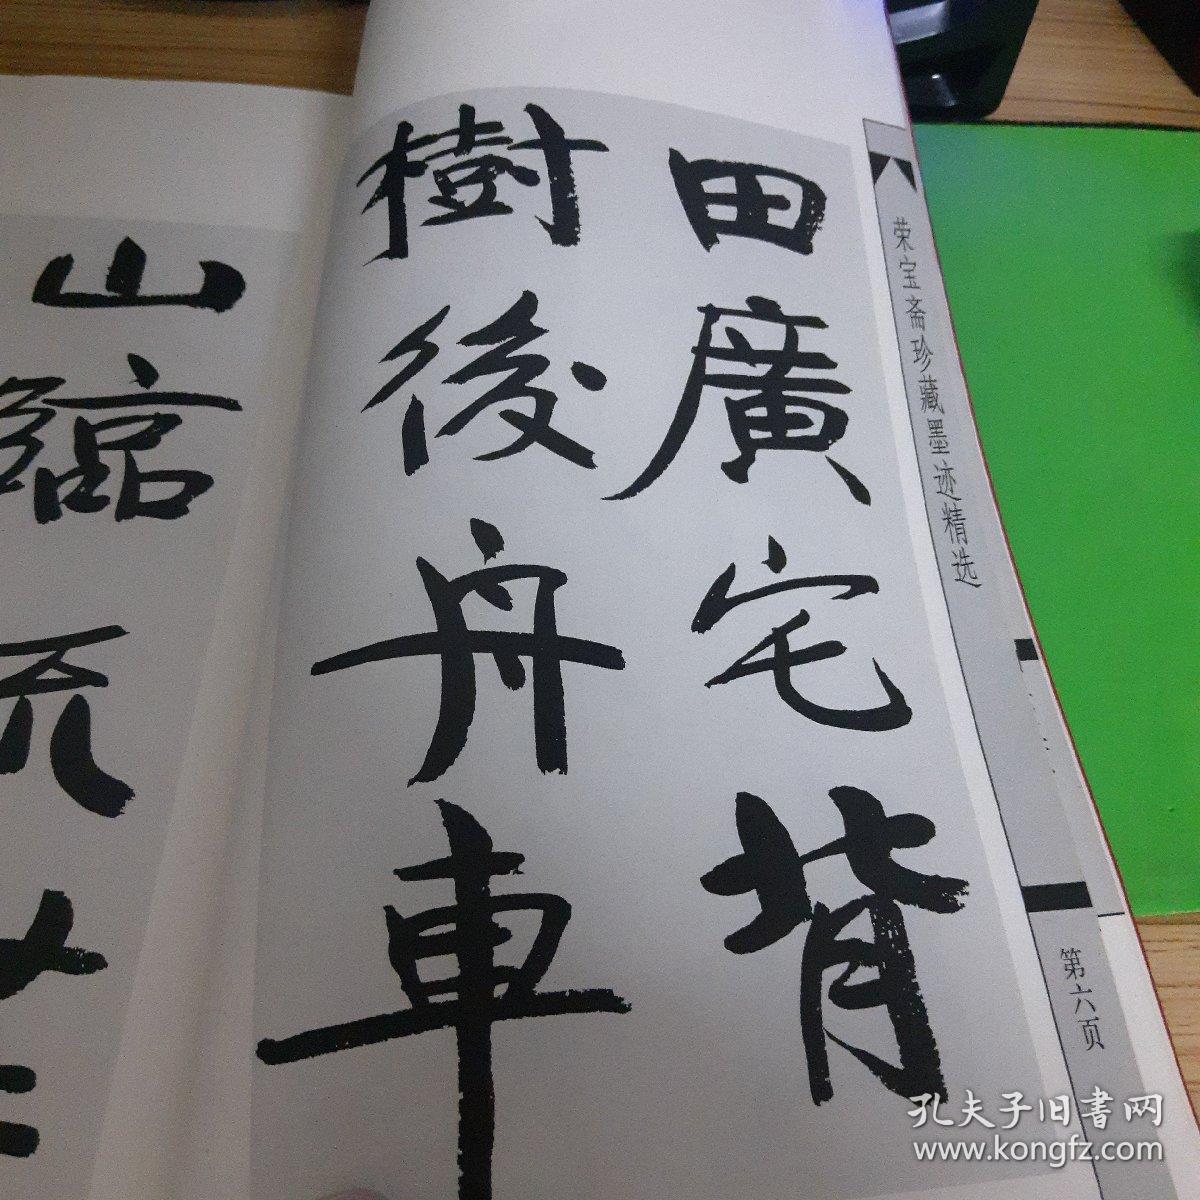 荣宝斋珍藏墨迹精选
田廣宅背
樹後舟車
山臨流
第六页
孔夫子旧書网
www.kongfz.com